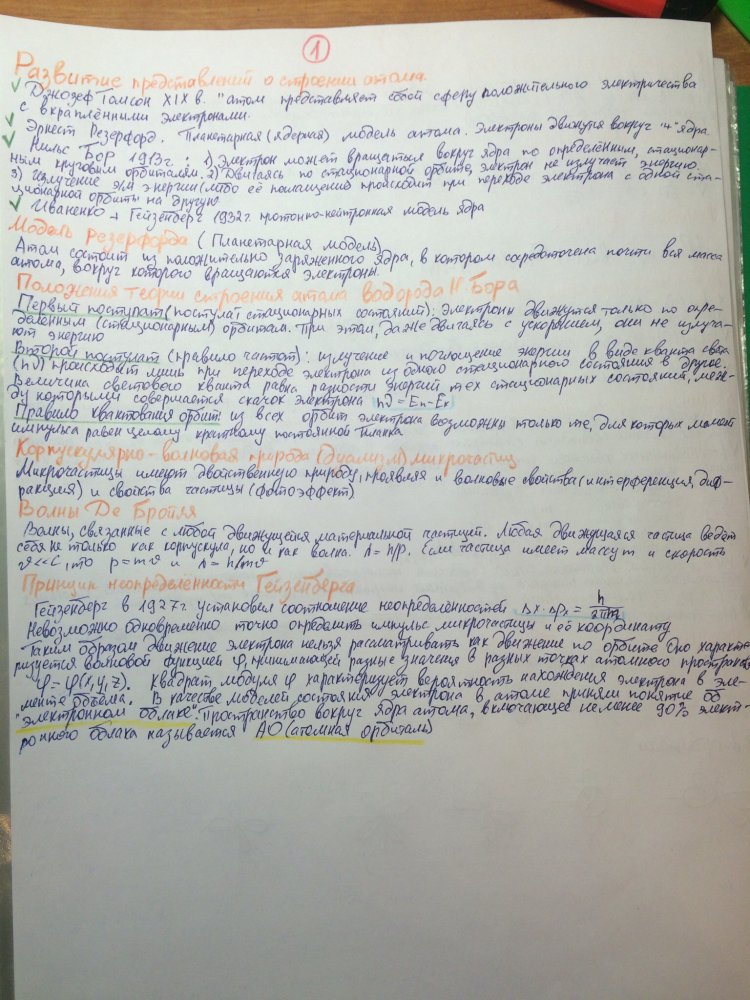 1
Развитие представлений о строении атома
Джозеф Томсон XIX в. "атом представляет собой сферу положительного электричества
с вкраплёнными электронами.
Эрнест Резерфорд. Планетарная (ядерная) модель атома. Электроны движутся вокруг "+" ядра
Нильс Бор 1913г: 1) Электрон может вращаться вокруг ядра по определённым, стационар-
ным круговым орбиталям. 2) Двигаясь по стационарной орбите, электрон не излучает энергию.
3) Излучение э/м энергии (либо её поглащение) происходит при переходе электрона с одной ста-
ционарной орбиты на другую
Иваненко Гейзенберг 1932г. протонно-нейтронная модель ядра
Модель Резерфорда (Планетарная модель)
Атом состоит из положительно заряженного ядра, в котором сосредоточена почти вся масса
атома, вокруг которого вращаются электроны.
Положения теории строения атома водорода Н. Бора
Первый поступат (постулат стационарных состояний): Электроны движутся только по опре-
делённым (стационарным) орбиталям. При этом, даже двигаясь с ускорением, они не излуча-
ют энергию
Второй поступат (правило частот): излучение и поглощение энергии в виде кванта света
(hν) происходит лишь при переходе электрона из одного стационарного состояния в другое.
Величина светового кванта равна разности энергий тех стационарных состояний, меж-
ду которыми совершается скачок электрона hν = Eн - Eк
Правило квантования орбит: из всех орбит электрона возможны только те, для которых момент
импульса равен целому кратному постоянной Планка
Корпускулярно-волновая природа (дуализм) микрочастиц
Микрочастицы имеют двойственную природу, проявляя и волновые свойства (интерференция, диф-
ракция) и свойства частицы (фотоэффект)
Волны Де Бройля
Волны, связанные с любой движущейся материальной частицей. Любая движущаяся частица ведёт
себя не только как корпускула, но и как волна. λ = h/p. Если частица имеет массу m и скорость
v<<c, то p = mv и λ = h/mv
Принцип неопределённости Гейзенберга
Гейзенберг в 1927г. установил соотношение неопределённостей Δx · Δpₓ = h/2πm
Невозможно одновременно точно определить импульс микрочастицы и её координату
Таким образом движение электрона нельзя рассматривать как движение по орбите Оно характе-
ризуется волновой функцией φ, принимающей разные значения в разных точках атомного пространства
φ = φ(x, y, z). Квадрат модуля φ характеризует вероятность нахождения электрона в эле-
менте объёма. В качестве моделей состояния электрона в атоме приняли понятие об
"электронном облаке". Пространство вокруг ядра атома, включающее не менее 90% элект-
ронного облака называется АО (атомная орбиталь)